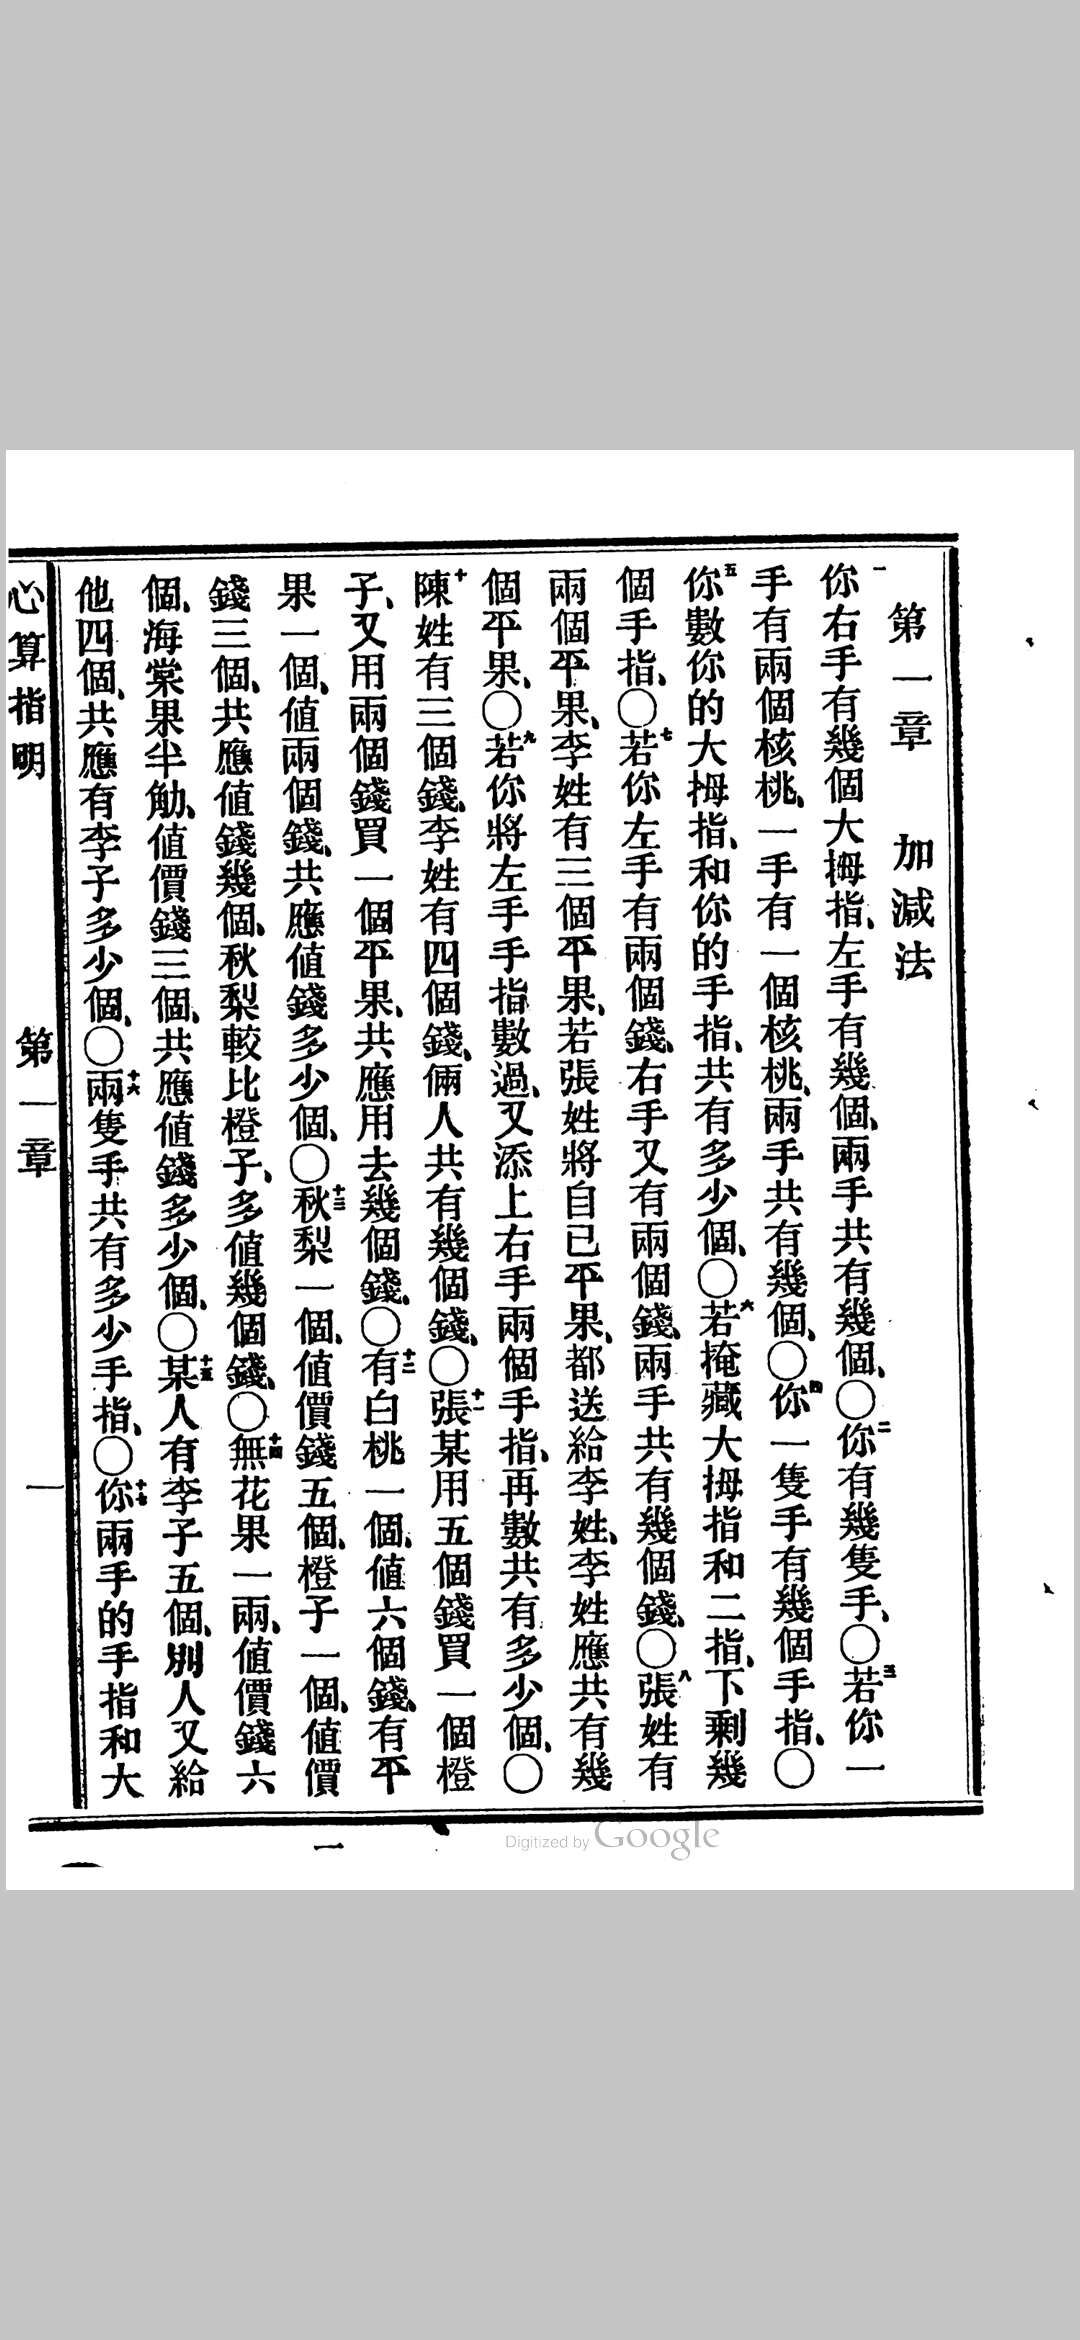 第一章　加減法
一你右手有幾個大拇指、左手有幾個、兩手共有幾個、〇二你有幾隻手、〇三若你一
手有兩個核桃、一手有一個核桃、兩手共有幾個、〇四你一隻手有幾個手指、〇
五你數你的大拇指、和你的手指、共有多少個、〇六若掩藏大拇指和二指、下剩幾
個手指、〇七若你左手有兩個錢、右手又有兩個錢、兩手共有幾個錢、〇八張姓有
兩個平果、李姓有三個平果、若張姓將自已平果、都送給李姓、李姓應共有幾
個平果、〇九若你將左手手指數過、又添上右手兩個手指、再數共有多少個、〇
十陳姓有三個錢、李姓有四個錢、倆人共有幾個錢、〇十一張某用五個錢買一個橙
子、又用兩個錢買一個平果、共應用去幾個錢、〇十二有白桃一個、值六個錢、有平
果一個、值兩個錢、共應值錢多少個、〇十三秋梨一個、值價錢五個、橙子一個、值價
錢三個、共應值錢幾個、秋梨較比橙子、多值幾個錢、〇十四無花果一兩、值價錢六
個、海棠果半觔、值價錢三個、共應值錢多少個、〇十五某人有李子五個、別人又給
他四個、共應有李子多少個、〇十六兩隻手共有多少手指、〇十七你兩手的手指和大
心算指明　第一章　一
一
Digitized by Google